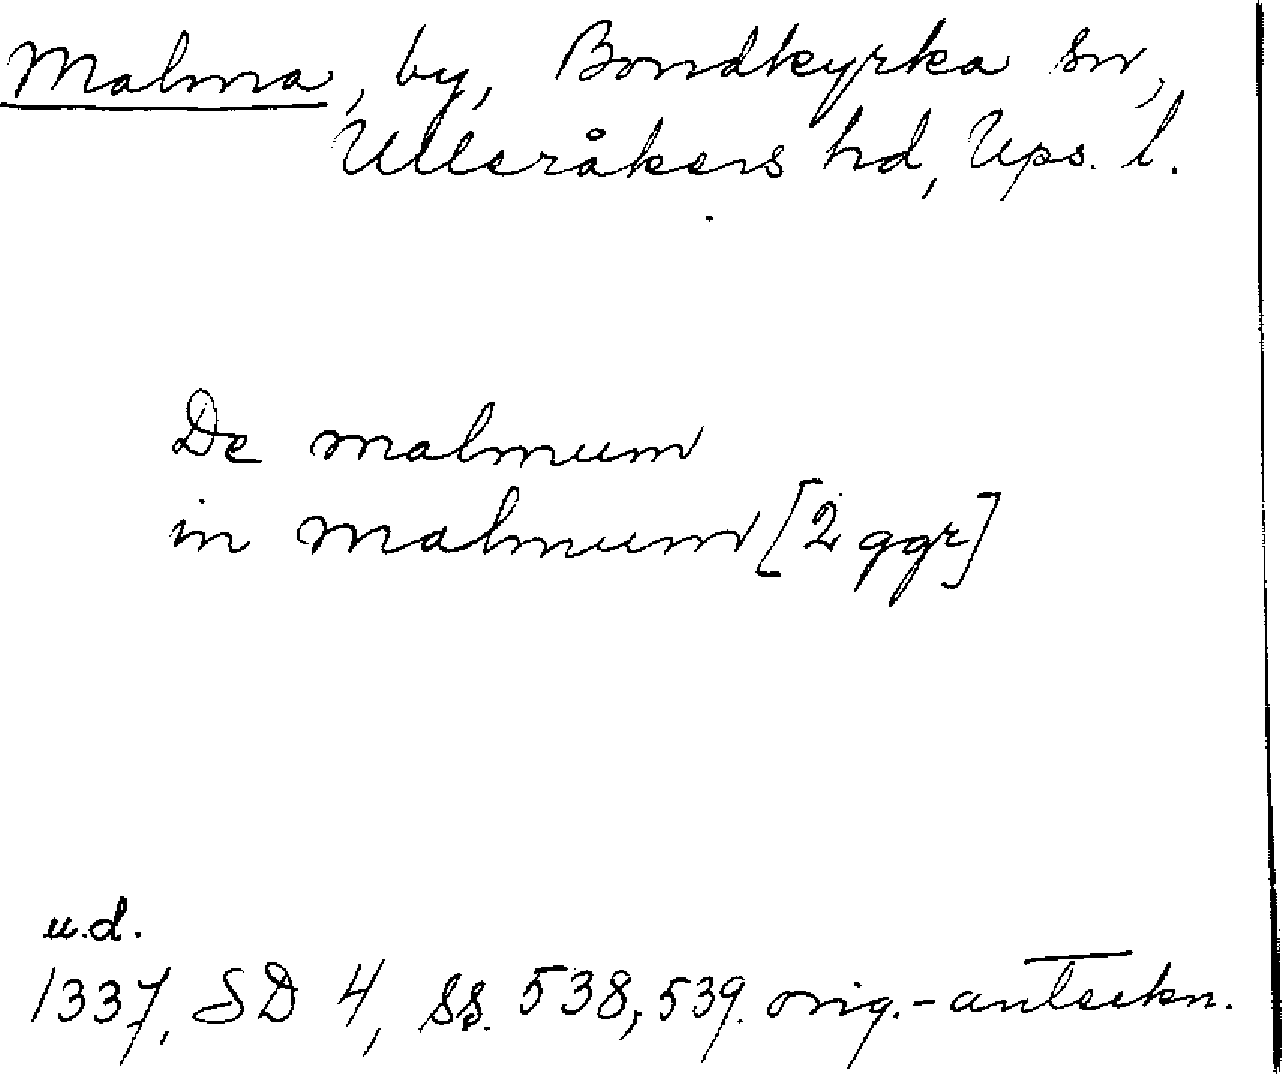 Malma, by, Bondkyrka sn,
Ulleråkers hd, Ups. l.
De malmum
in malmum [2 ggr]
u.d.
1337, SD 4, ss. 538, 539. orig.-anteckn.